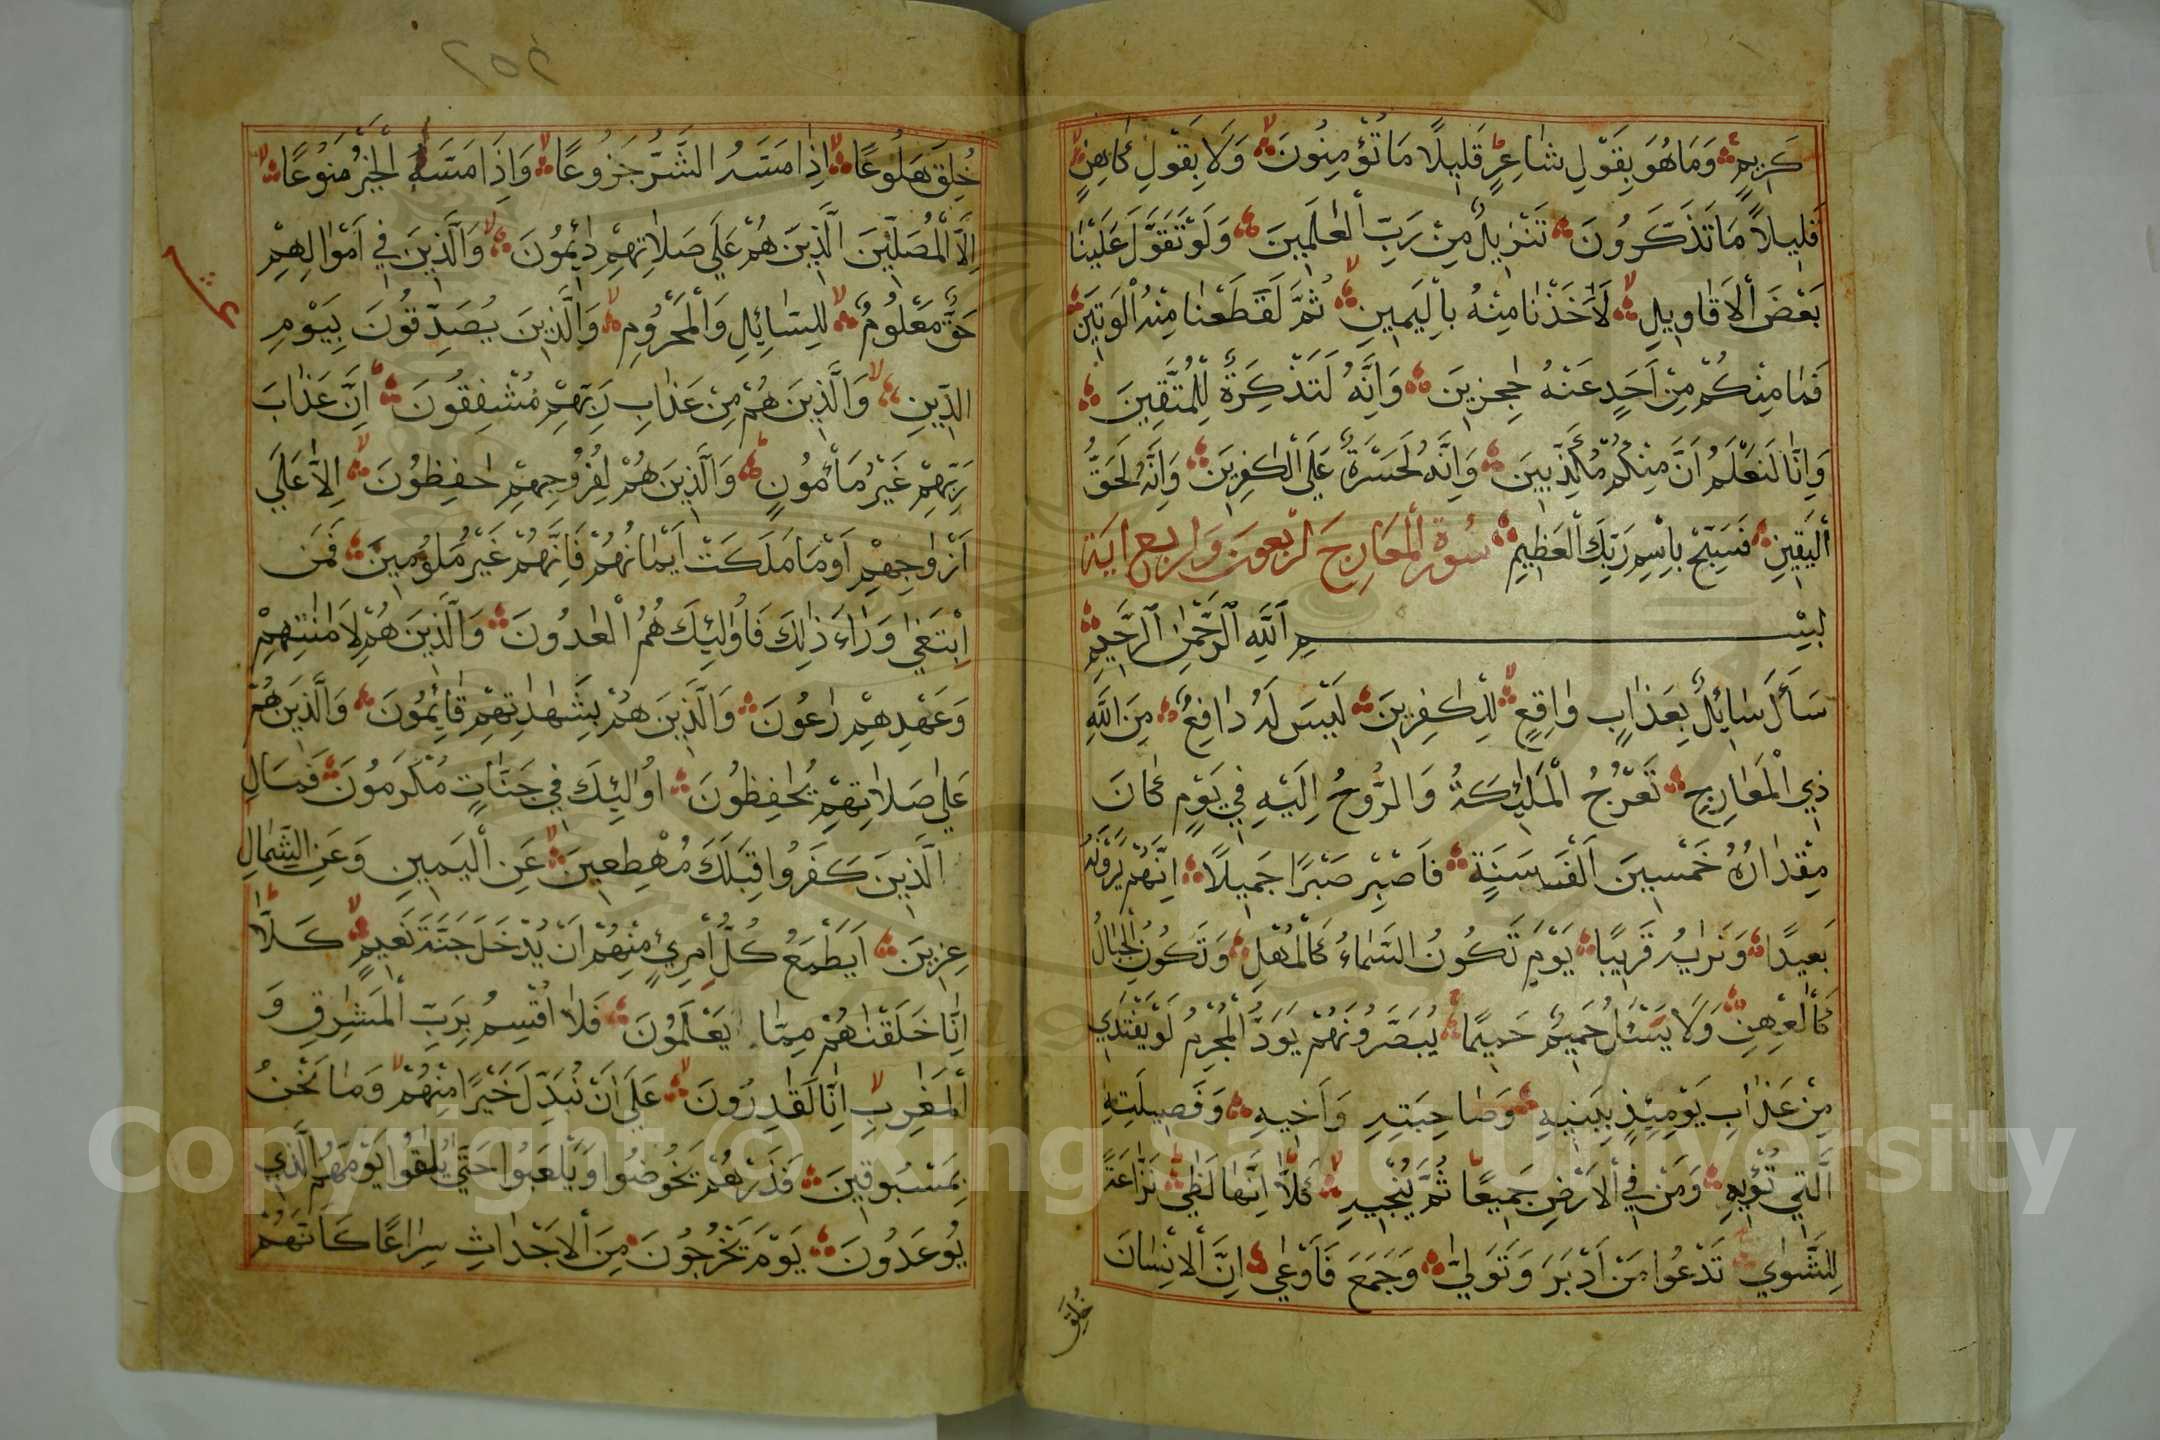 كَرِيمٍ وَمَا هُوَ بِقَوْلِ شَاعِرٍ قَلِيلًا مَا تُؤْمِنُونَ وَلَا بِقَوْلِ كَاهِنٍ
قَلِيلًا مَا تَذَكَّرُونَ تَنْزِيلٌ مِنْ رَبِّ الْعٰلَمِينَ وَلَوْ تَقَوَّلَ عَلَيْنَا
بَعْضَ الْاَقَاوِيلِ لَاَخَذْنَا مِنْهُ بِالْيَمِينِ ثُمَّ لَقَطَعْنَا مِنْهُ الْوَتِينَ
فَمَا مِنْكُمْ مِنْ اَحَدٍ عَنْهُ حٰجِزِينَ وَاِنَّهُ لَتَذْكِرَةٌ لِلْمُتَّقِينَ
وَاِنَّا لَنَعْلَمُ اَنَّ مِنْكُمْ مُكَذِّبِينَ وَاِنَّهُ لَحَسْرَةٌ عَلَى الْكٰفِرِينَ وَاِنَّهُ لَحَقُّ
الْيَقِينِ فَسَبِّحْ بِاسْمِ رَبِّكَ الْعَظِيمِ سُورَةُ الْمَعَارِجِ اربعون واربع اية
بِسْمِ اللّٰهِ الرَّحْمٰنِ الرَّحِيمِ
سَأَلَ سَائِلٌ بِعَذَابٍ وَاقِعٍ لِلْكٰفِرِينَ لَيْسَ لَهُ دَافِعٌ مِنَ اللّٰهِ
ذِي الْمَعَارِجِ تَعْرُجُ الْمَلٰئِكَةُ وَالرُّوحُ اِلَيْهِ فِي يَوْمٍ كَانَ
مِقْدَارُهُ خَمْسِينَ اَلْفَ سَنَةٍ فَاصْبِرْ صَبْرًا جَمِيلًا اِنَّهُمْ يَرَوْنَهُ
بَعِيدًا وَنَرٰيهُ قَرِيبًا يَوْمَ تَكُونُ السَّمَاءُ كَالْمُهْلِ وَتَكُونُ الْجِبَالُ
كَالْعِهْنِ وَلَا يَسْئَلُ حَمِيمٌ حَمِيمًا يُبَصَّرُونَهُمْ يَوَدُّ الْمُجْرِمُ لَوْ يَفْتَدِي
مِنْ عَذَابِ يَوْمِئِذٍ بِبَنِيهِ وَصَاحِبَتِهِ وَاَخِيهِ وَفَصِيلَتِهِ
الَّتِي تُؤْيهِ وَمَنْ فِي الْاَرْضِ جَمِيعًا ثُمَّ يُنْجِيهِ كَلَّا اِنَّهَا لَظٰى نَزَّاعَةً
لِلشَّوٰى تَدْعُوا مَنْ اَدْبَرَ وَتَوَلّٰى وَجَمَعَ فَاَوْعٰى اِنَّ الْاِنْسَانَ
خُلِقَ
خُلِقَ هَلُوعًا اِذَا مَسَّهُ الشَّرُّ جَزُوعًا وَاِذَا مَسَّهُ الْخَيْرُ مَنُوعًا
اِلَّا الْمُصَلِّينَ الَّذِينَ هُمْ عَلٰى صَلَاتِهِمْ دَائِمُونَ وَالَّذِينَ فِي اَمْوَالِهِمْ
حَقٌّ مَعْلُومٌ لِلسَّائِلِ وَالْمَحْرُومِ وَالَّذِينَ يُصَدِّقُونَ بِيَوْمِ
الدِّينِ وَالَّذِينَ هُمْ مِنْ عَذَابِ رَبِّهِمْ مُشْفِقُونَ اِنَّ عَذَابَ
رَبِّهِمْ غَيْرُ مَأْمُونٍ وَالَّذِينَ هُمْ لِفُرُوجِهِمْ حٰفِظُونَ اِلَّا عَلٰى
اَزْوَاجِهِمْ اَوْ مَا مَلَكَتْ اَيْمَانُهُمْ فَاِنَّهُمْ غَيْرُ مَلُومِينَ فَمَنِ
ابْتَغٰى وَرَاءَ ذٰلِكَ فَاُولٰئِكَ هُمُ الْعَادُونَ وَالَّذِينَ هُمْ لِاَمَانٰتِهِمْ
وَعَهْدِهِمْ رَاعُونَ وَالَّذِينَ هُمْ بِشَهَادٰتِهِمْ قَائِمُونَ وَالَّذِينَ هُمْ
عَلٰى صَلَاتِهِمْ يُحَافِظُونَ اُولٰئِكَ فِي جَنَّاتٍ مُكْرَمُونَ فَمَالِ
الَّذِينَ كَفَرُوا قِبَلَكَ مُهْطِعِينَ عَنِ الْيَمِينِ وَعَنِ الشِّمَالِ
عِزِينَ اَيَطْمَعُ كُلُّ امْرِئٍ مِنْهُمْ اَنْ يُدْخَلَ جَنَّةَ نَعِيمٍ كَلَّا
اِنَّا خَلَقْنَاهُمْ مِمَّا يَعْلَمُونَ فَلَا اُقْسِمُ بِرَبِّ الْمَشَارِقِ وَ
الْمَغَارِبِ اِنَّا لَقَادِرُونَ عَلٰى اَنْ نُبَدِّلَ خَيْرًا مِنْهُمْ وَمَا نَحْنُ
بِمَسْبُوقِينَ فَذَرْهُمْ يَخُوضُوا وَيَلْعَبُوا حَتّٰى يُلَاقُوا يَوْمَهُمُ الَّذِي
يُوعَدُونَ يَوْمَ يَخْرُجُونَ مِنَ الْاَجْدَاثِ سِرَاعًا كَاَنَّهُمْ
Copyright © King Saud University